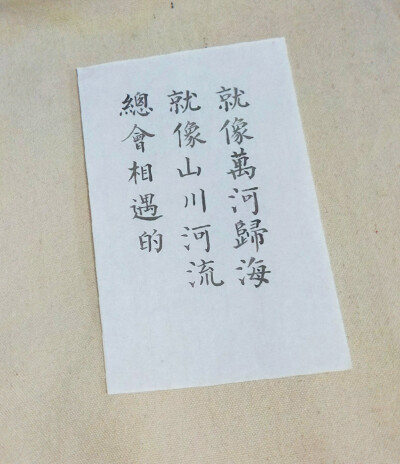 就像萬河歸海
就像山川河流
總會相遇的